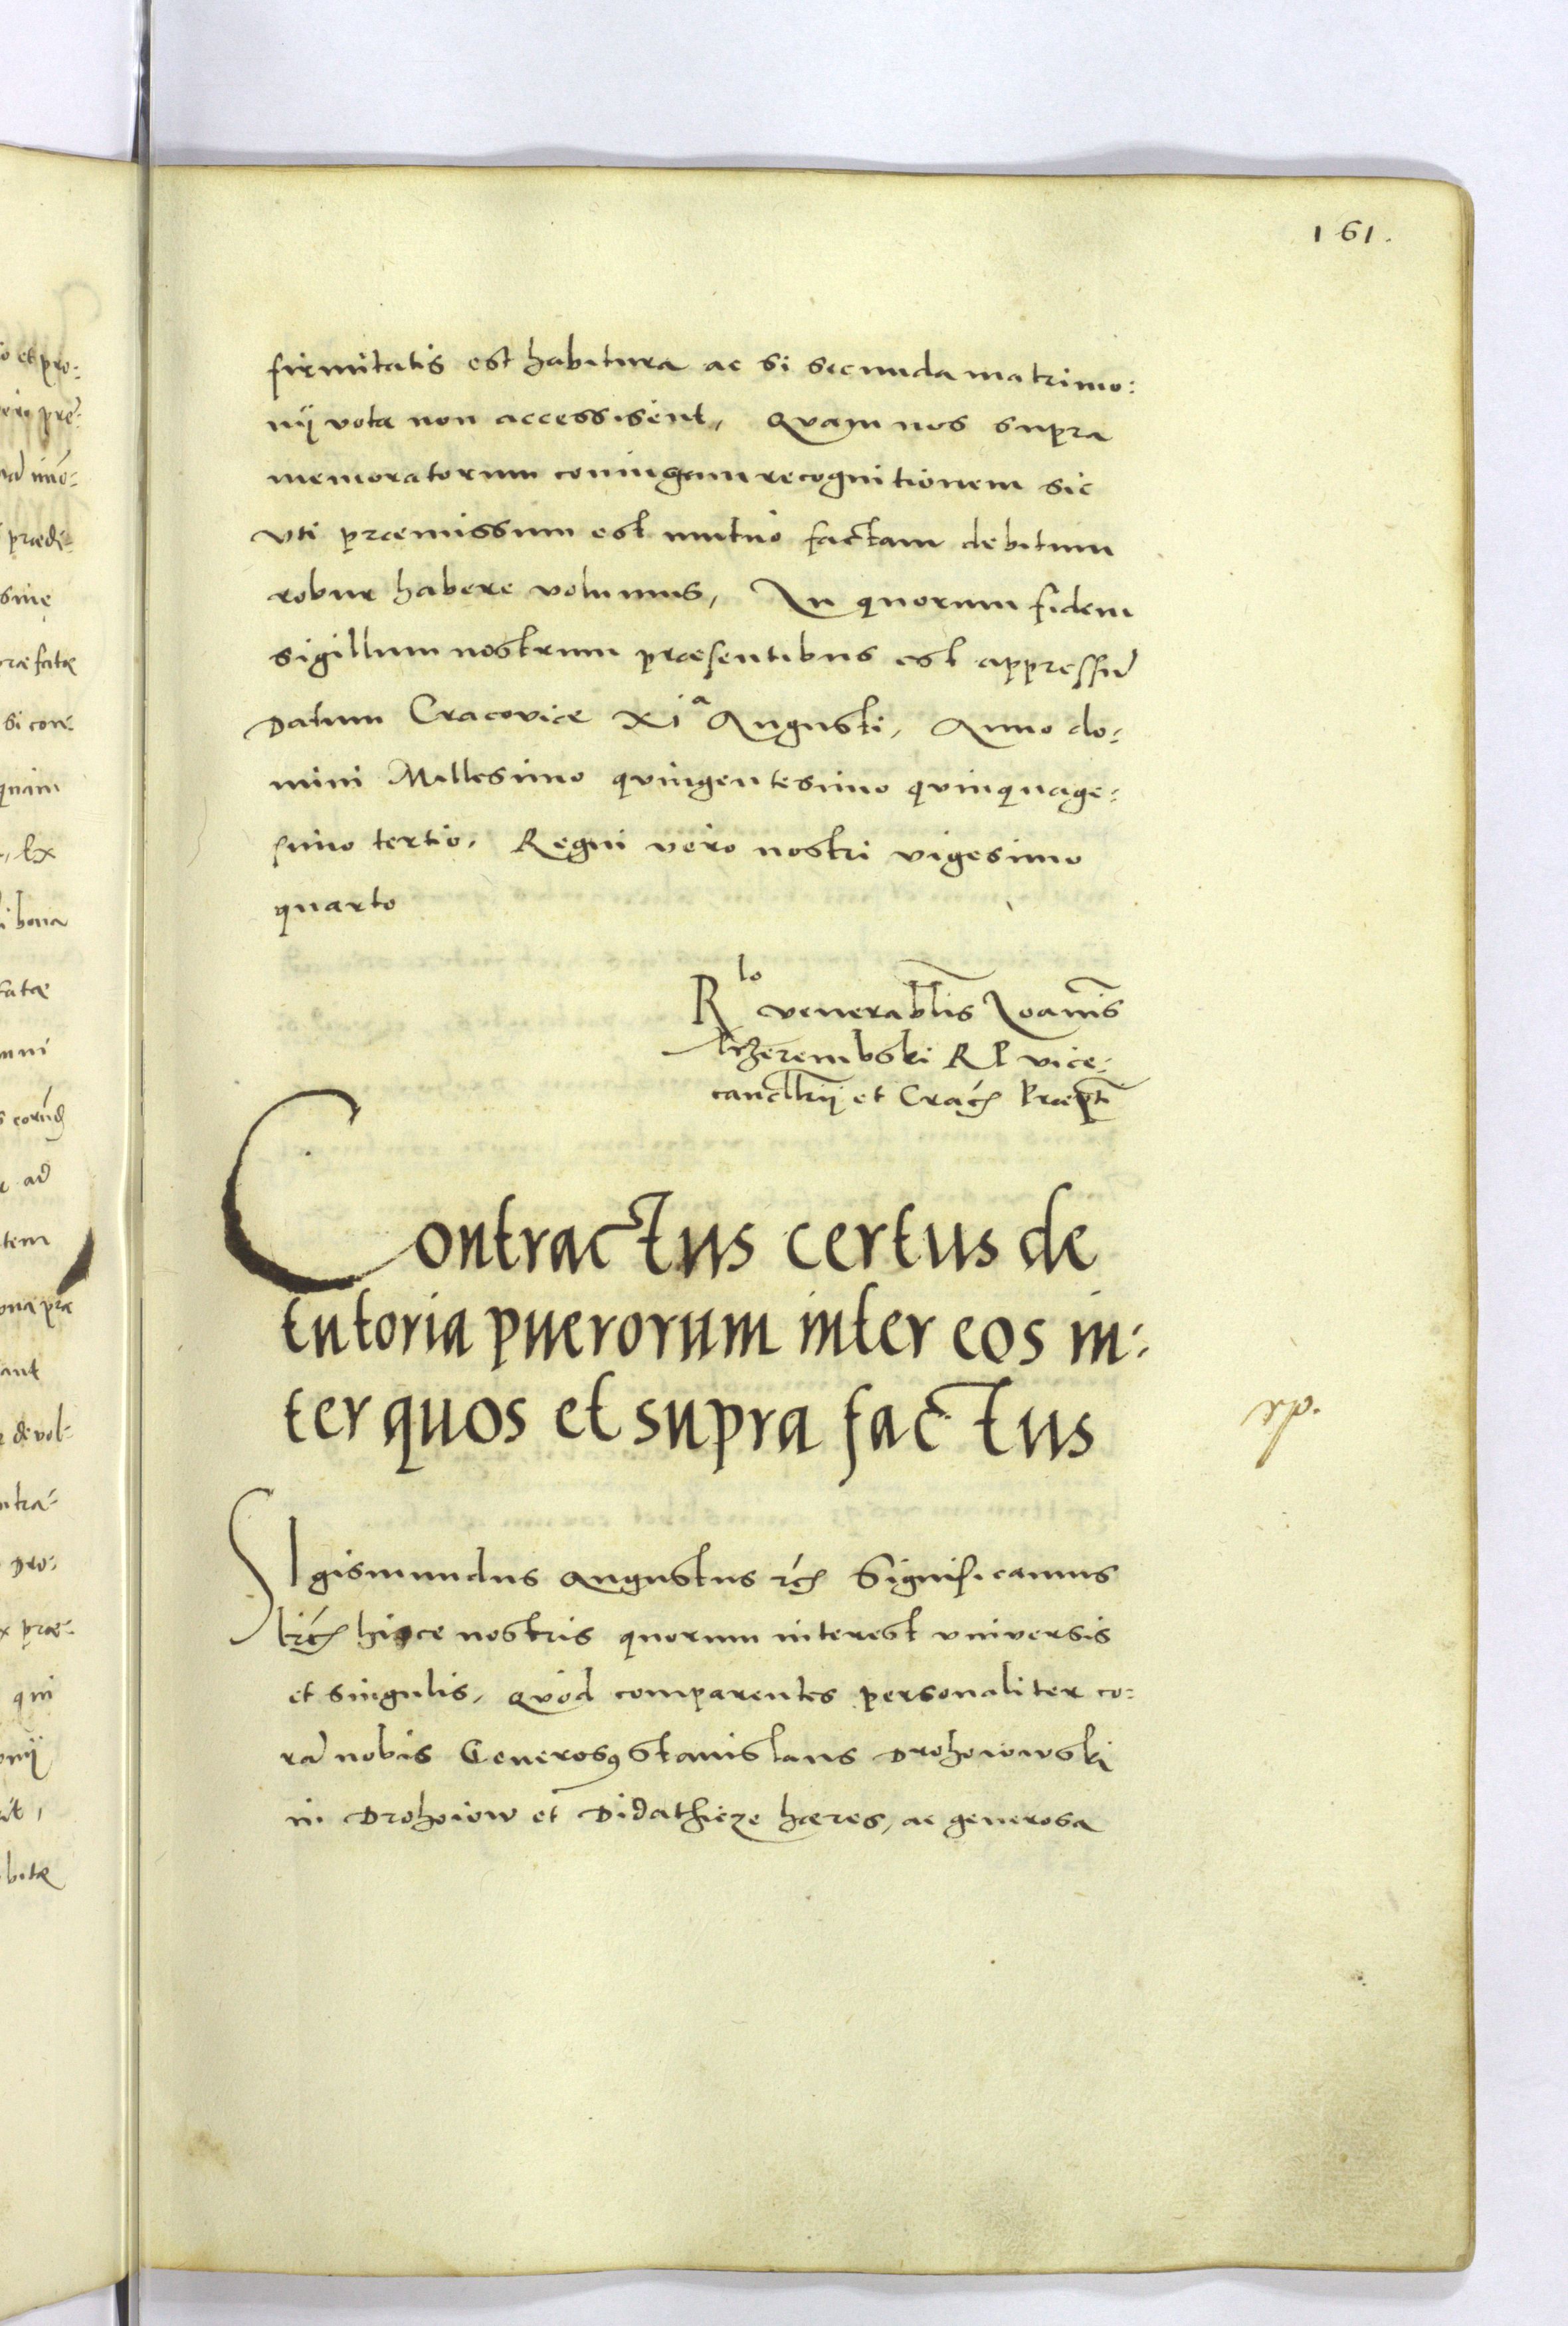 161.
firmitatis est habitura ac si secunda matrimo:
nij vota non accessisent, Quam nos supra
memoratorum coniugum recognitionem sic
vti præmissum est mutuo factam debitum
robur habere volumus, In quorum fidem
sigillum nostrum præsentibus est appressũ
Datum Cracoviæ XIª Augusti, Anno do:
mini Millesimo quingentesimo quinquage:
simo tertio. Regni vero nostri vigesimo
quarto
Rlo venerablis Ioannis
Przerembski R P vice:
cancllrij et Crac̃ Præpti
Contractus certus de
tutoria puerorum inter eos in:
ter quos et supra factus
rp.
SIgismundus Augustus rc̃ Significamus
hisce nostris quorum interest vniversis
et singulis, Quod comparentes personaliter co:
rã nobis Generosꝰ Stanislaus Drohoiowski
in Drohoiow et Didathicze hæres, ac generosa